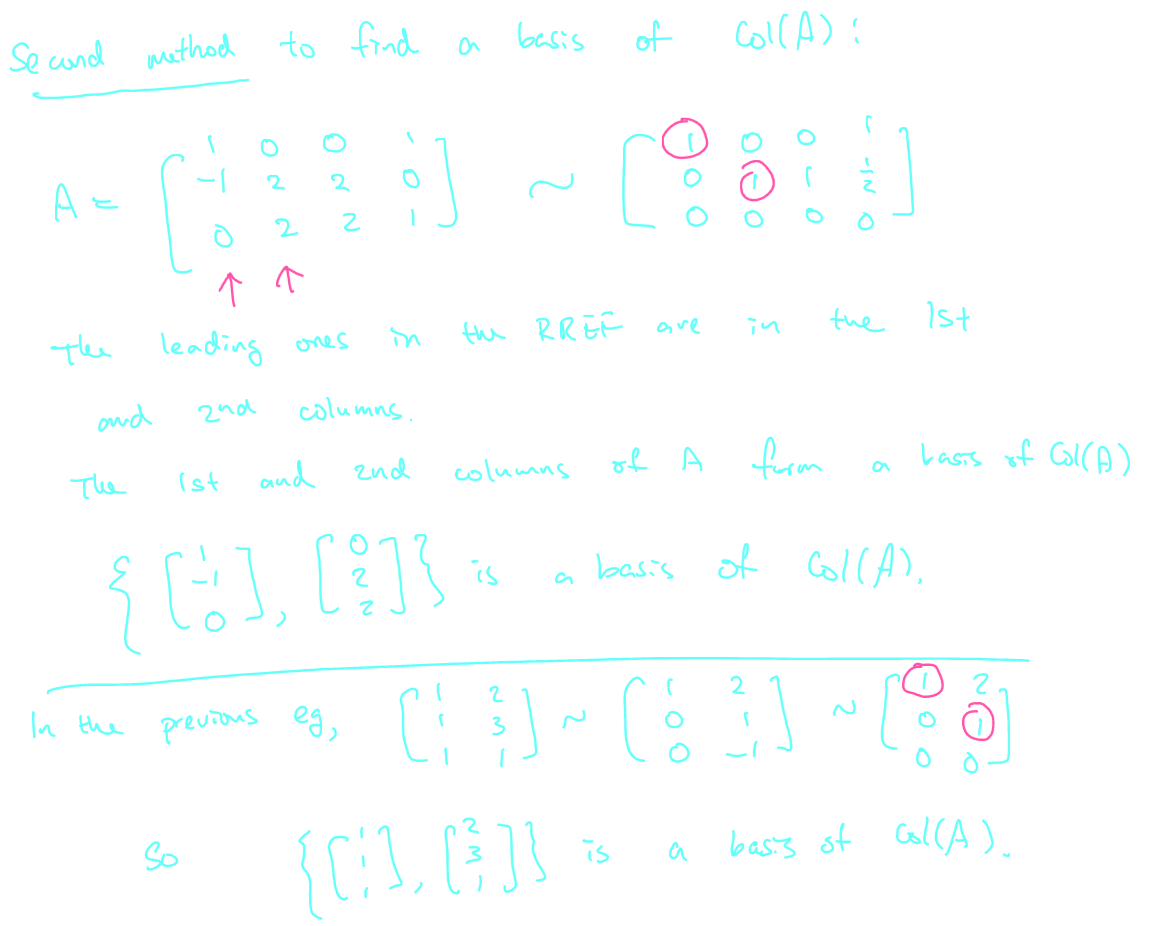 Second method to find a basis of Col(A):
A = [ 1 0 0 1 ; -1 2 2 0 ; 0 2 2 1 ] ~ [ 1 0 0 1 ; 0 1 1 1/2 ; 0 0 0 0 ]
↑ ↑
The leading ones in the RREF are in the 1st
and 2nd columns.
The 1st and 2nd columns of A form a basis of Col(A)
{ [ 1 ; -1 ; 0 ], [ 0 ; 2 ; 2 ] } is a basis of Col(A).
In the previous eg, [ 1 2 ; 1 3 ; 1 1 ] ~ [ 1 2 ; 0 1 ; 0 -1 ] ~ [ 1 2 ; 0 1 ; 0 0 ]
So { [ 1 ; 1 ; 1 ], [ 2 ; 3 ; 1 ] } is a basis of Col(A).